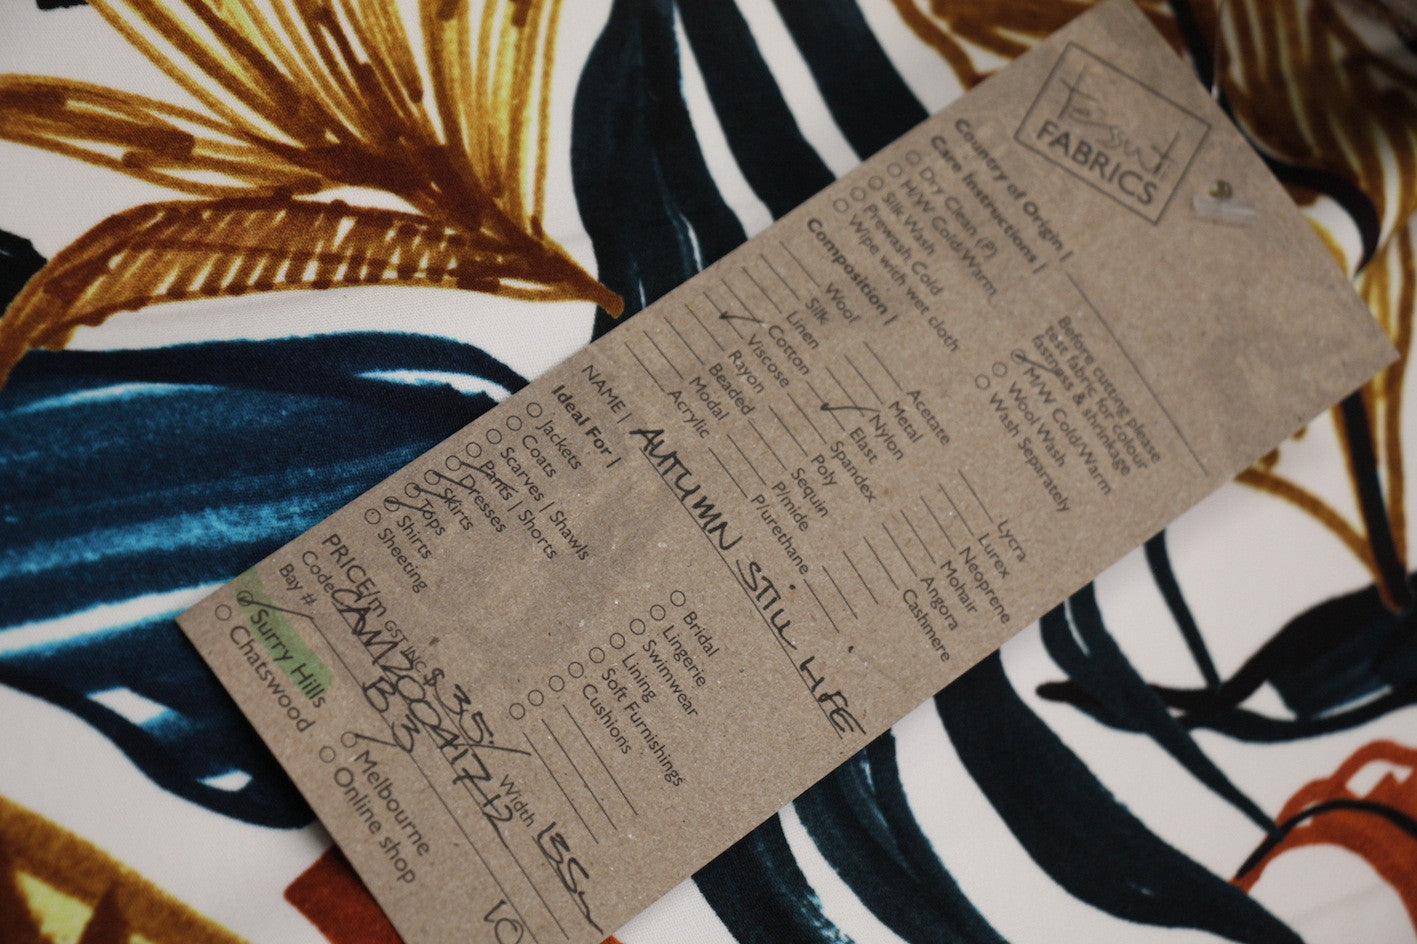 Tessuti
FABRICS
Country of Origin |
Care Instructions |
Dry Clean (P)
H/W Cold/Warm
Silk Wash
Prewash Cold
Wipe with wet cloth
Before cutting please
test fabric for colour
fastness & shrinkage
M/W Cold/Warm
Wool Wash
Wash Separately
Composition |
Wool
Silk
Linen
Cotton
Viscose
Rayon
Beaded
Modal
Acrylic
Acetate
Metal
Nylon
Elast
Spandex
Poly
Sequin
P/mide
P/urethane
Lycra
Lurex
Neoprene
Mohair
Angora
Cashmere
NAME | AUTUMN STILL LIFE
Ideal For |
Jackets
Coats
Scarves | Shawls
Pants | Shorts
Dresses
Skirts
Tops
Shirts
Sheeting
Bridal
Lingerie
Swimwear
Lining
Soft Furnishings
Cushions
PRICE/m GST INC $ 35/ Width
Code CAM20041712
Bay # B3
Surry Hills
Chatswood
Melbourne
Online shop